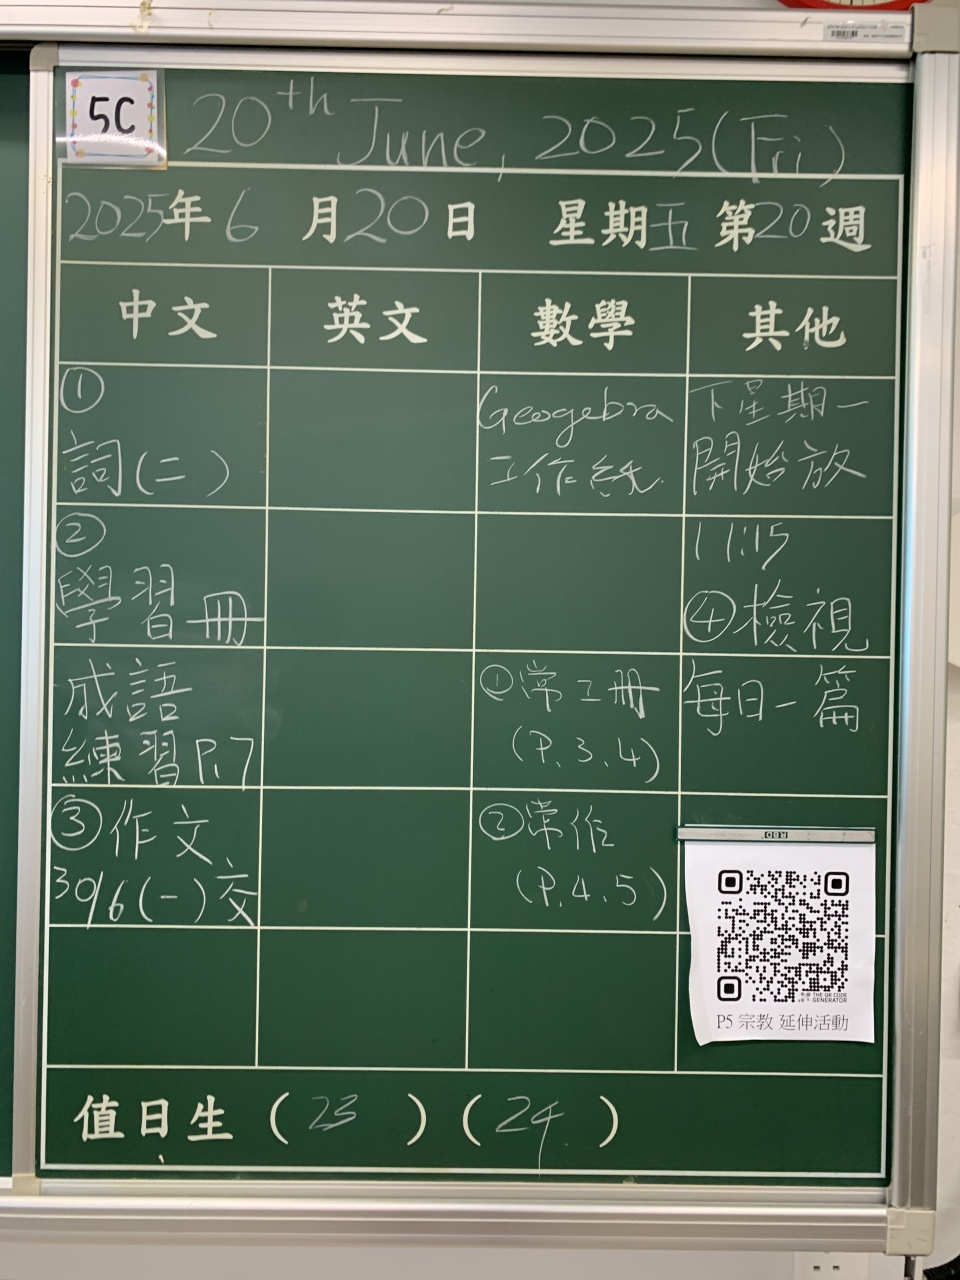 5C
20th June, 2025 (Fri)
2025年6月20日 星期五 第20週
中文 英文 數學 其他
①
詞(二)
②
學習冊
成語
練習P.7
③作文
30/6(一)交
Geogebra
工作紙
①常工冊
(P.3.4)
②常作
(P.4.5)
下星期一
開始放
11:15
④檢視
每日一篇
RBD
THE QR CODE
GENERATOR
P5 宗教 延伸活動
值日生 (23) (24)